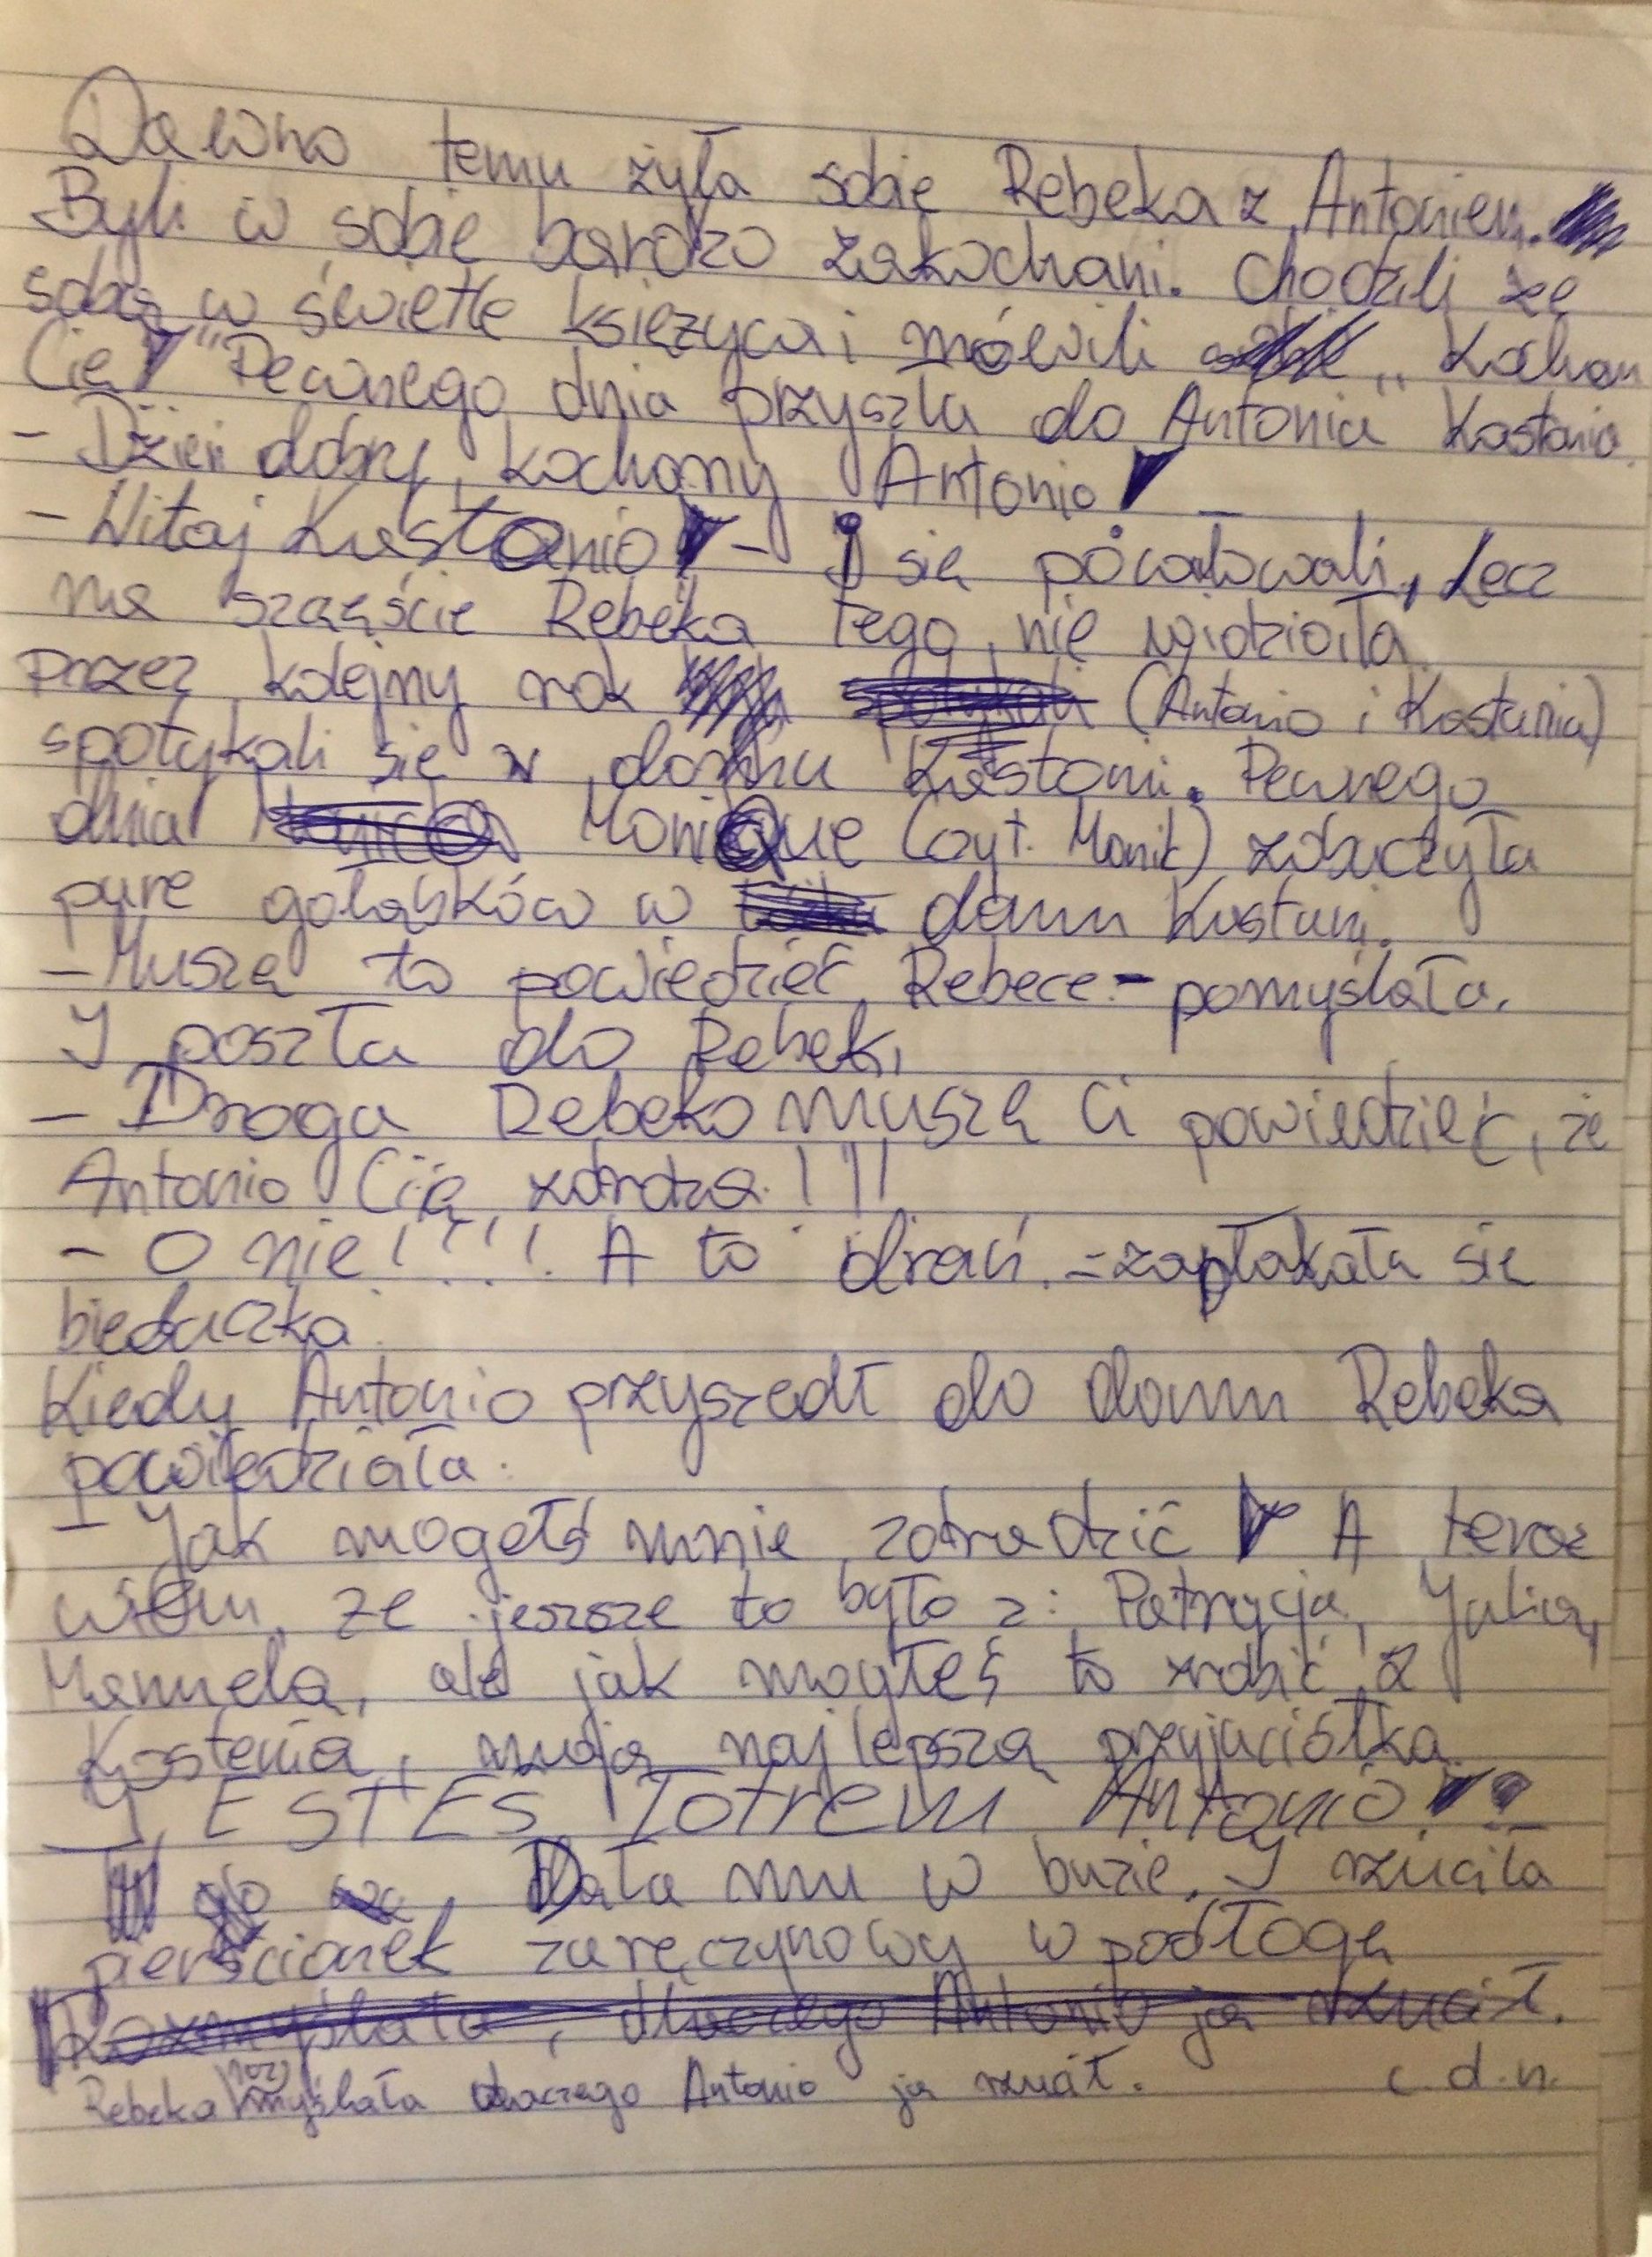 Dawno temu żyła sobie Rebeka z Antoniem.
Byli w sobie bardzo zakochani. Chodzili ze
sobą w świetle księzyca i mówili „Kocham
Cię!" Pewnego dnia przyszła do Antonia Kastania.
- Dzień dobry, kochany Antonio!
- Witaj Kastanio! - I się pocałowali, Lecz
na szczęście Rebeka tego nie widziała.
Przez kolejny rok (Antonio i Kastania)
spotykali się w domku Kastani. Pewnego
dnia Monique (czyt. Monik) zobaczyła
parę gołąbków w domu Kastani.
- Muszę to powiedzieć Rebece. - pomyślała.
I poszła do Rebeki
- Droga Rebeko muszę Ci powiedzieć, że
Antonio Cię zdradza!!!
- O nie!!!! A to drań. - zapłakała się
biedaczka.
Kiedy Antonio przyszedł do domu Rebeka
powiedziała:
- Jak mogełś mnie zdradzić! A teraz
wiem, ze jeszsze to było z: Patrycją, Julią,
Manuelą, ale jak mogłeś to zrobić z
Kastenią, moją najlepszą przyjaciółką.
JESTEŚ łotrem Antonio!!
Dała mu w buzie. I rzuciła
pierścionek zaręczynowy w podłogę
Rozmyślała, dlaczego Antonio ją rzucił.
Rebeka rozmyślała dlaczego Antonio ją rzucił. c.d.n.